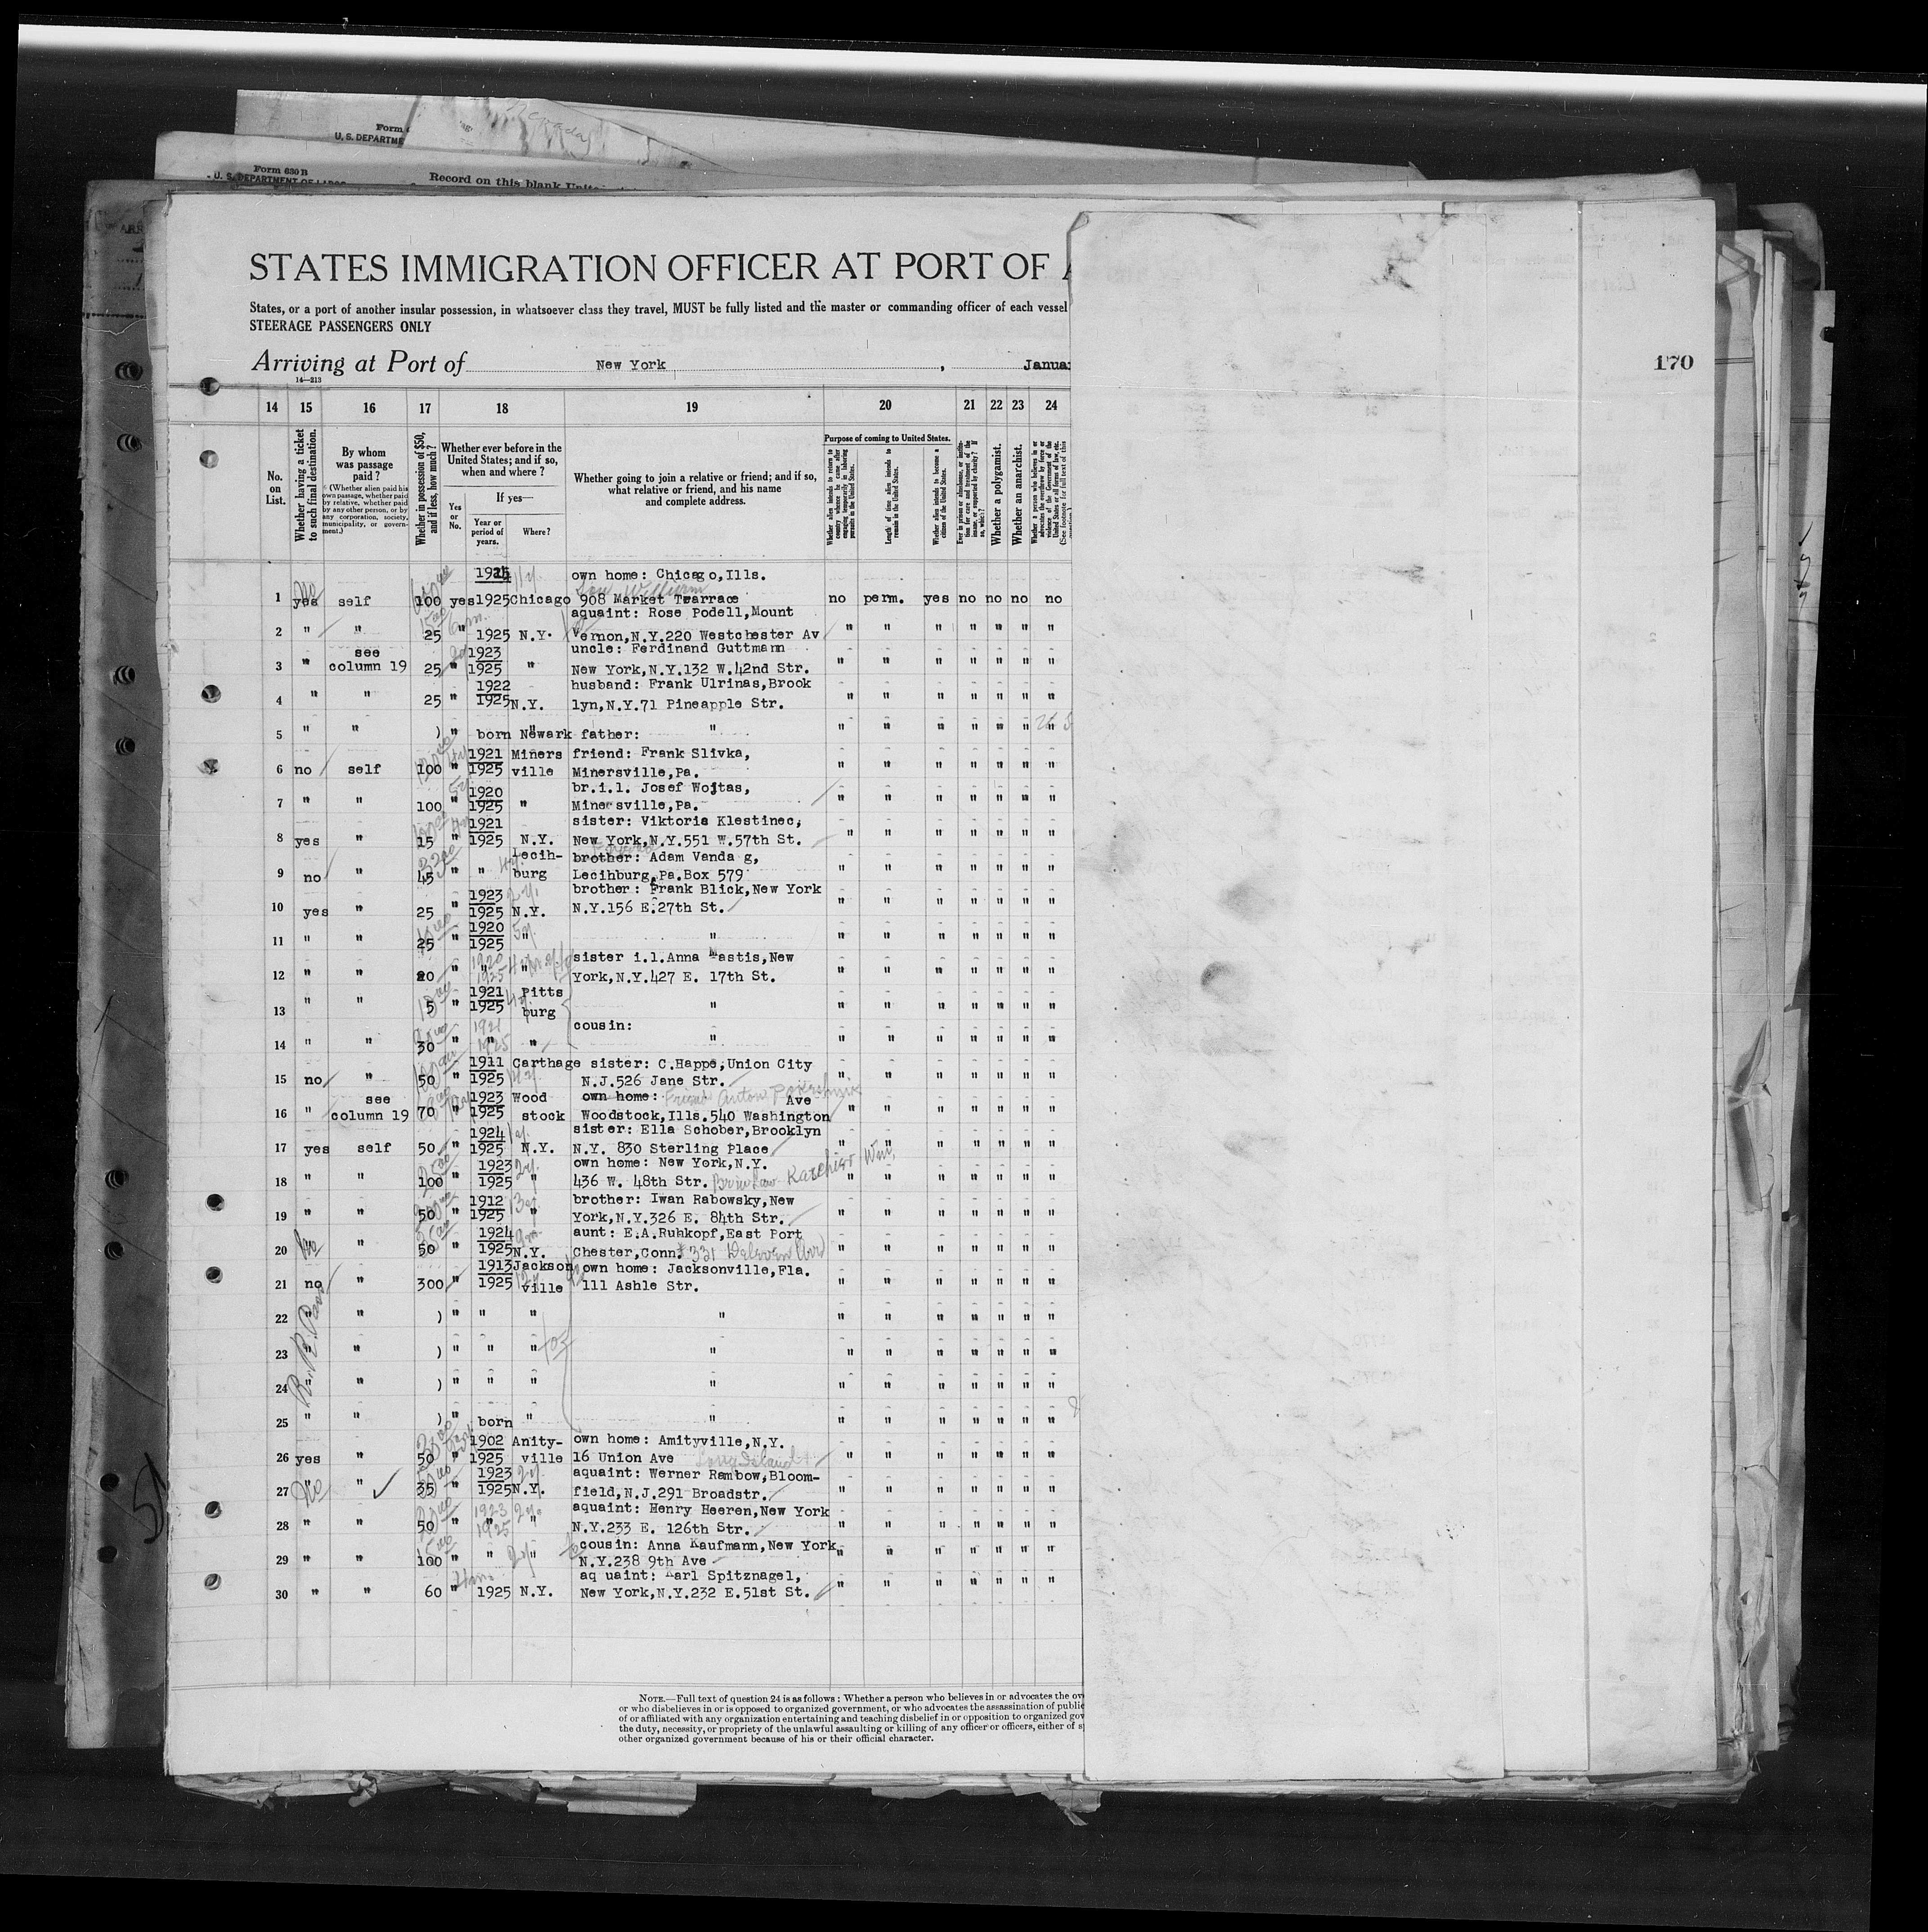 Form
U. S. DEPARTME
Form 630 B
U. S. DEPARTMENT OF LABOR
Record on this blank Unite
STATES IMMIGRATION OFFICER AT PORT OF A
States, or a port of another insular possession, in whatsoever class they travel, MUST be fully listed and the master or commanding officer of each vessel
STEERAGE PASSENGERS ONLY
Arriving at Port of New York, Januar
14—213
170
14 15 16 17 18 19 20 21 22 23 24
No. on List.
Whether having a ticket to such final destination.
By whom was passage paid?
(Whether alien paid his own passage, whether paid by relative, whether paid by any other person, or by any corporation, society, municipality, or government.)
Whether in possession of $50, and if less, how much?
Whether ever before in the United States; and if so, when and where?
Yes or No.
If yes—
Year or period of years.
Where?
Whether going to join a relative or friend; and if so, what relative or friend, and his name and complete address.
Purpose of coming to United States.
Whether alien intends to return to country whence he came after engaging temporarily in laboring pursuits in the United States.
Length of time alien intends to remain in the United States.
Whether alien intends to become a citizen of the United States.
Whether a polygamist.
Whether an anarchist.
own home: Chicago,Ills.
1 yes self 100 yes 1925 Chicago 908 Market Tearrace no perm. yes no no no no
aquaint: Rose Podell,Mount
2 " " 25 " 1925 N.Y. Vernon,N.Y.220 Westchester Av " " " " " " "
see 1923 uncle: Ferdinand Guttmann
3 " column 19 25 " 1925 " New York,N.Y.132 W.42nd Str. " " " " " " "
1922 husband: Frank Ulrinas,Brook
4 " " 25 " 1925 N.Y. lyn,N.Y.71 Pineapple Str. " " " " " " "
5 " " ) " born Newark father: " " " " " " " "
1921 Miners friend: Frank Slivka,
6 no self 100 " 1925 ville Minersville,Pa. " " " " " " "
1920 br.i.l. Josef Wojtas,
7 " " 100 " 1925 " Minersville,Pa. " " " " " " "
1921 sister: Viktoria Klestinec,
8 yes " 15 " 1925 N.Y. New York,N.Y.551 W.57th St. " " " " " " "
Lecih- brother: Adam Vanda g,
9 no " 45 " " burg Lecihburg,Pa.Box 579 " " " " " " "
1923 brother: Frank Blick,New York
10 yes " 25 " 1925 N.Y. N.Y.156 E.27th St. " " " " " " "
1920
11 " " 25 " 1925 " " " " " " " " "
1920 sister i.l.Anna Nastis,New
12 " " 20 " " 1925 " York,N.Y.427 E. 17th St. " " " " " " "
1921 Pitts
13 " " 5 " 1925 burg " " " " " " " "
1921 cousin:
14 " " 30 " " 1925 " " " " " " " " "
1911 Carthage sister: C.Happe,Union City
15 no " 50 " 1925 N.J.526 Jane Str. " " " " " " "
see 1923 Wood own home: Friend Anton Ave
16 " column 19 70 " 1925 stock Woodstock,Ills.540 Washington " " " " " " "
1924 sister: Ella Schober,Brooklyn
17 yes self 50 " 1925 N.Y. N.Y. 830 Sterling Place " " " " " " "
1923 own home: New York,N.Y.
18 " " 100 " 1925 " 436 W. 48th Str. " " " " " " "
1912 brother: Iwan Rabowsky,New
19 " " 50 " 1925 " York,N.Y.326 E. 84th Str. " " " " " " "
1924 aunt: E.A.Ruhkopf,East Port
20 no " 50 " 1925 N.Y. Chester,Conn. " " " " " " "
1913 Jackson own home: Jacksonville,Fla.
21 no " 300 " 1925 ville 111 Ashle Str. " " " " " " "
22 " " ) " " " " " " " " " " "
23 " " ) " " " " " " " " " " "
24 " " ) " " " " " " " " " " "
25 " " ) " born " " " " " " " " "
1902 Anity- own home: Amityville,N.Y.
26 yes " 50 " 1925 ville 16 Union Ave Long Island " " " " " " "
1923 aquaint: Werner Rambow,Bloom-
27 " No " 35 " 1925 N.Y. field,N.J.291 Broadstr. " " " " " " "
1923 aquaint: Henry Heeren,New York
28 " " 50 " " 1925 " N.Y.233 E. 126th Str. " " " " " " "
cousin: Anna Kaufmann,New York
29 " " 100 " " " N.Y.238 9th Ave " " " " " " "
aq uaint: Karl Spitznagel,
30 " " 60 " 1925 N.Y. New York,N.Y.232 E.51st St. " " " " " " "
NOTE.—Full text of question 24 is as follows: Whether a person who believes in or advocates the ov
or who disbelieves in or is opposed to organized government, or who advocates the assassination of public
of or affiliated with any organization entertaining and teaching disbelief in or opposition to organized gov
the duty, necessity, or propriety of the unlawful assaulting or killing of any officer or officers, either of s
other organized government because of his or their official character.